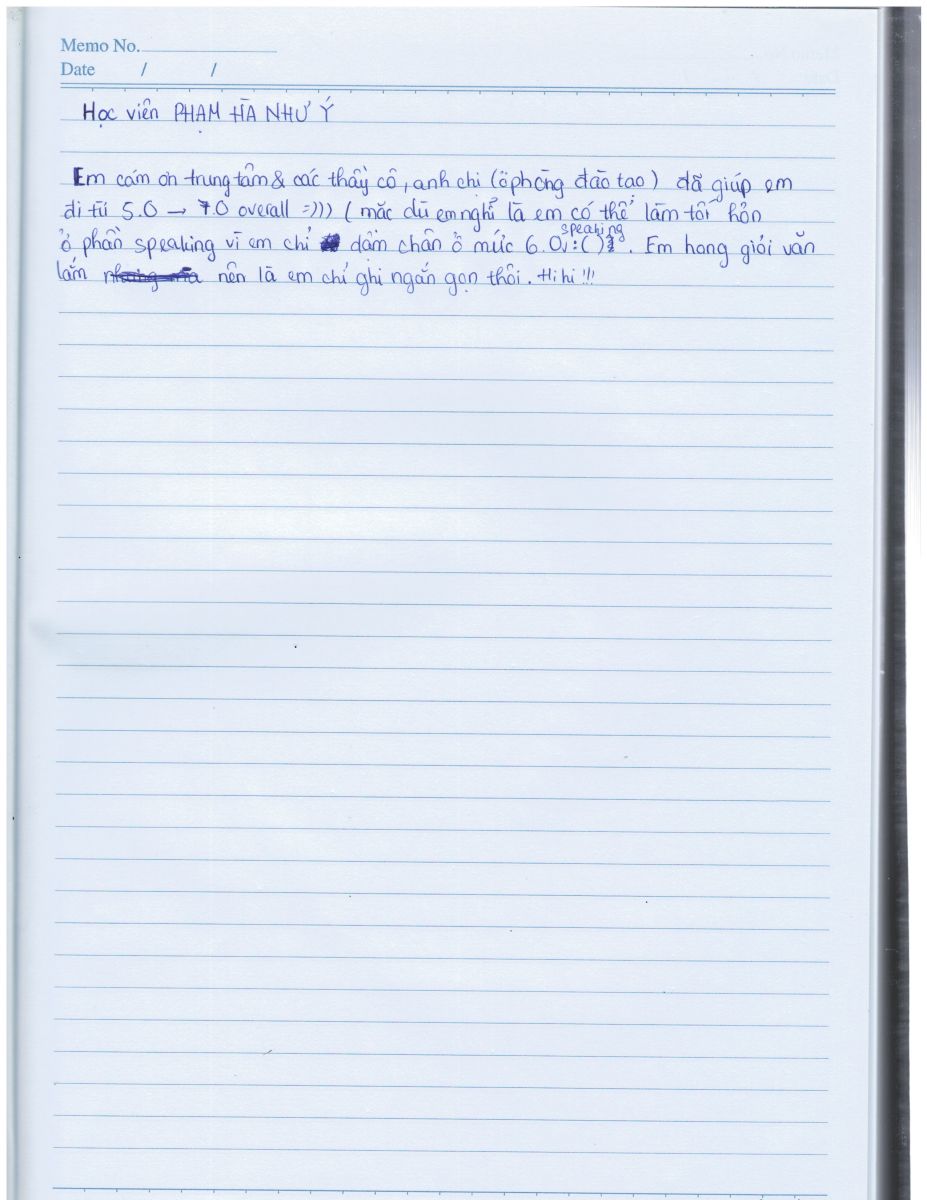 Memo No.
Date / /
Học viên PHẠM HÀ NHƯ Ý
Em cám ơn trung tâm & các thầy cô, anh chị (ở phòng đào tạo) đã giúp em
đi từ 5.0 → 7.0 overall =))) (mặc dù em nghĩ là em có thể làm tốt hơn
ở phần speaking vì em chỉ dậm chân ở mức 6.0 speaking :( ). Em hong giỏi văn
lắm nên là em chỉ ghi ngắn gọn thôi. Hihi!!!